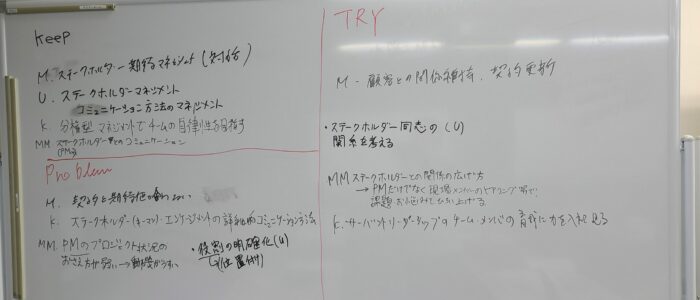 Keep
M. ステークホルダー期待マネジメント (対話)
U. ステークホルダーマネジメント
コミュニケーション方法のマネジメント
K. 分権型マネジメントでチームの自律性を目指す
MM ステークホルダーとのコミュニケーション
(PM系)
Problem
M. 契約と期待値が合わない
K. ステークホルダー(キーマン)・エンゲージメントの詳細 コミュニケーション方法
MM. PMのプロジェクト状況の
おさえ方が弱い→動きがうすい
・役割の明確化(U)
(位置付け)
TRY
M - 顧客との関係維持、契約更新
・ステークホルダー同志の (U)
関係を考える
MM ステークホルダーとの関係の広げ方
→PMだけでなく現場メンバーのヒアリング等で
課題 お悩みをひろい上げる
K. サーバントリーダーシップのチーム・メンバの育成に力を入れる